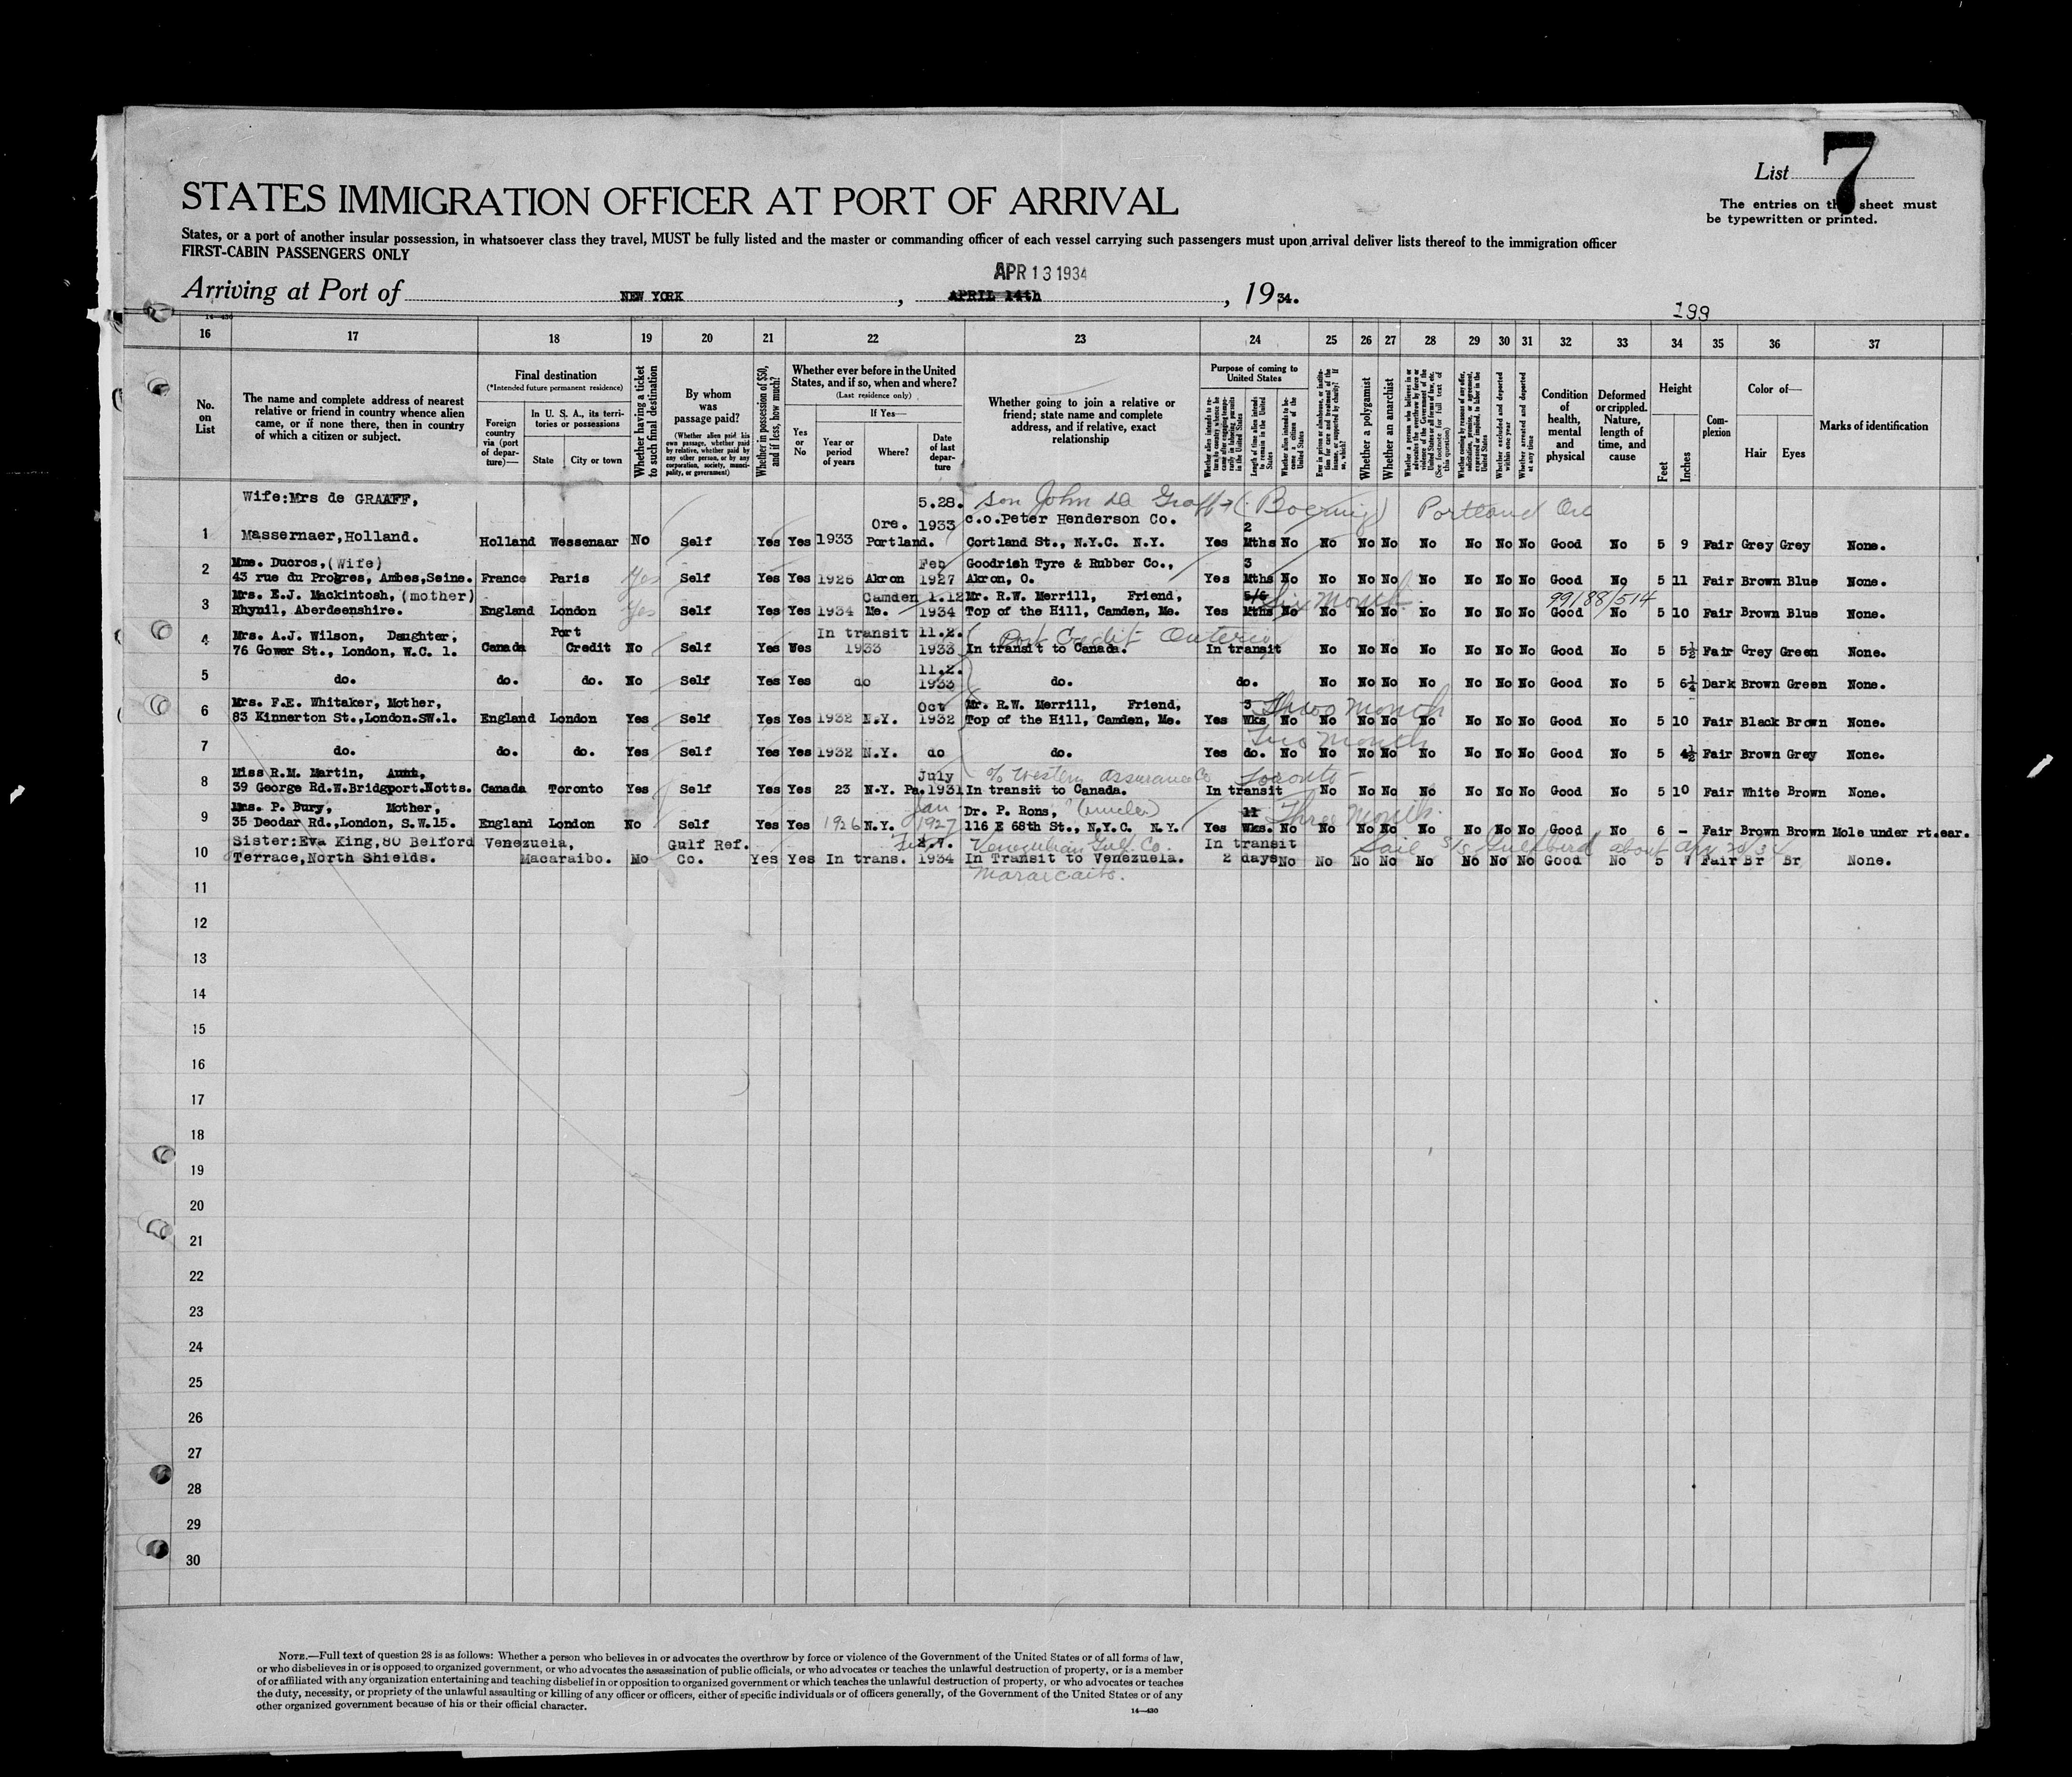 List 7
The entries on this sheet must
be typewritten or printed.
STATES IMMIGRATION OFFICER AT PORT OF ARRIVAL
States, or a port of another insular possession, in whatsoever class they travel, MUST be fully listed and the master or commanding officer of each vessel carrying such passengers must upon arrival deliver lists thereof to the immigration officer
FIRST-CABIN PASSENGERS ONLY
APR 13 1934
Arriving at Port of NEW YORK, APRIL 14th, 1934.
199
14—430
16 17 18 19 20 21 22 23 24 25 26 27 28 29 30 31 32 33 34 35 36 37
No. on List
The name and complete address of nearest
relative or friend in country whence alien
came, or if none there, then in country
of which a citizen or subject.
Final destination
(*Intended future permanent residence)
Foreign country via (port of departure)—
In U. S. A., its territories or possessions
State City or town
Whether having a ticket to such final destination
By whom was passage paid?
(Whether alien paid his own passage, whether paid by relative, whether paid by any other person, or by any corporation, society, municipality, or government)
Whether in possession of $50, and if less, how much?
Whether ever before in the United
States, and if so, when and where?
(Last residence only)
Yes or No
If Yes—
Year or period of years
Where?
Date of last departure
Whether going to join a relative or
friend; state name and complete
address, and if relative, exact
relationship
Purpose of coming to United States
Whether a polygamist
Whether an anarchist
(See footnote for full text of this question)
Whether arrested and deported at any time
Condition of health, mental and physical
Deformed or crippled. Nature, length of time, and cause
Height
Feet Inches
Complexion
Color of—
Hair Eyes
Marks of identification
Wife:Mrs de GRAAFF, 5.28. son John de Graff Portland Ore
Ore. 1933 c.o.Peter Henderson Co. 2
1 Massernaer,Holland. Holland Wessenaar No Self Yes Yes 1933 Portland. Cortland St., N.Y.C. N.Y. Yes Mths No No No No No No No No Good No 5 9 Fair Grey Grey None.
Mme. Ducros,(Wife) Feb Goodrish Tyre & Rubber Co., 3
2 43 rue du Progres, Ambes,Seine. France Paris Yes Self Yes Yes 1926 Akron 1927 Akron, O. Yes Mths No No No No No No No No Good No 5 11 Fair Brown Blue None.
Mrs. E.J. Mackintosh,(mother) Camden 1.12 Mr. R.W. Merrill, Friend, 5/6 Six Month 99188/514
3 Rhynil, Aberdeenshire. England London Yes Self Yes Yes 1934 Me. 1934 Top of the Hill, Camden, Me. Yes Mths No No No No No No No No Good No 5 10 Fair Brown Blue None.
Mrs. A.J. Wilson, Daughter, Port In transit 11.2. Port Credit Ontario
4 76 Gower St., London, W.C. 1. Canada Credit No Self Yes Wes 1933 1933 In transit to Canada. In transit No No No No No No No Good No 5 5½ Fair Grey Green None.
11.2.
5 do. do. do. No Self Yes Yes do 1933 do. do. No No No No No No No Good No 5 6¼ Dark Brown Green None.
Mrs. F.E. Whitaker, Mother, Oct Mr. R.W. Merrill, Friend, 3 Month
6 83 Kinnerton St.,London.SW.1. England London Yes Self Yes Yes 1932 N.Y. 1932 Top of the Hill, Camden, Me. Yes Wks No No No No No No No No Good No 5 10 Fair Black Brown None.
Two Month
7 do. do. do. Yes Self Yes Yes 1932 N.Y. do do. Yes do. No No No No No No No No Good No 5 4½ Fair Brown Grey None.
Miss R.M. Martin, Aunt, July c/o Western Assurance Co Toronto
8 39 George Rd.W.Bridgport.Notts. Canada Toronto Yes Self Yes Yes 23 N.Y. Pa.1931 In transit to Canada. In transit No No No No No No No Good No 5 10 Fair White Brown None.
Mrs. P. Bury, Mother, Jan Dr. P. Rons, (uncle) 11 Three Month.
9 35 Deodar Rd.,London, S.W.15. England London No Self Yes Yes 1926 N.Y. 1927 116 E 68th St., N.Y.C. N.Y. Yes Wks. No No No No No No No No Good No 6 - Fair Brown Brown Mole under rt.ear.
Sister:Eva King,80 Belford Venezuela, Gulf Ref. Venezuelan Gulf Co. In transit Sail S/S Gulfbird about Apr
10 Terrace,North Shields. Macaraibo. No Co. Yes Yes In trans. 1934 In Transit to Venezuela. 2 days No No No No No No No No Good No 5 7 Fair Br Br None.
Maraicaibo.
11
12
13
14
15
16
17
18
19
20
21
22
23
24
25
26
27
28
29
30
NOTE.—Full text of question 28 is as follows: Whether a person who believes in or advocates the overthrow by force or violence of the Government of the United States or of all forms of law,
or who disbelieves in or is opposed to organized government, or who advocates the assassination of public officials, or who advocates or teaches the unlawful destruction of property, or is a member
of or affiliated with any organization entertaining and teaching disbelief in or opposition to organized government or which teaches the unlawful destruction of property, or who advocates or teaches
the duty, necessity, or propriety of the unlawful assaulting or killing of any officer or officers, either of specific individuals or of officers generally, of the Government of the United States or of any
other organized government because of his or their official character.
14—430